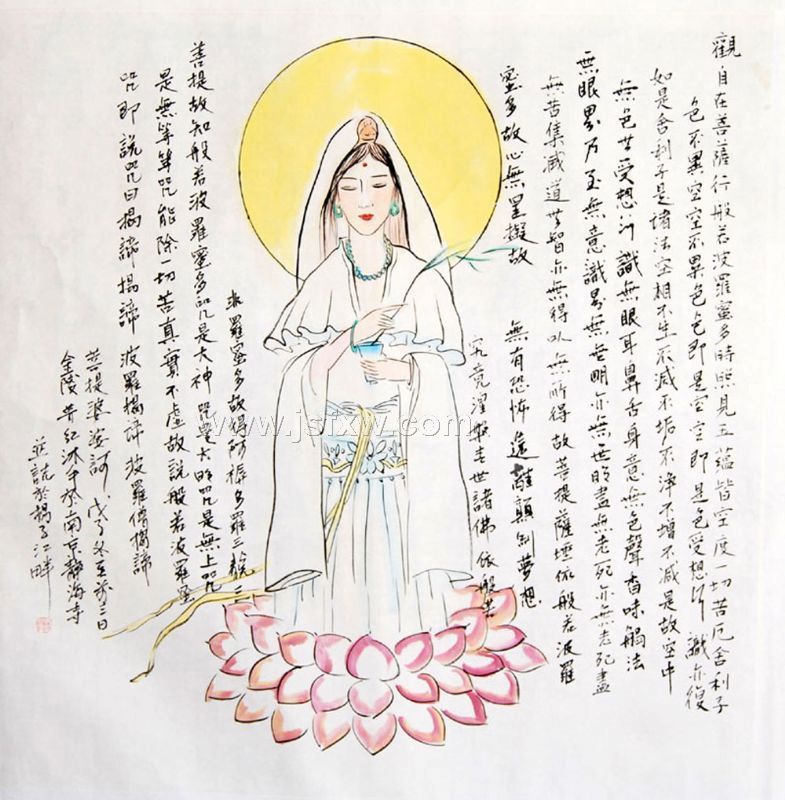 觀自在菩薩行般若波羅蜜多時照見五蘊皆空度一切苦厄舍利子
色不異空空不異色色即是空空即是色受想行識亦復
如是舍利子是諸法空相不生不滅不垢不淨不增不減是故空中
無色世受想行識無眼耳鼻舌身意無色聲香味觸法
無眼界乃至無意識界無世明亦無世明盡無老死亦無老死盡
無苦集滅道世智亦無得以無所得故菩提薩埵依般若波羅
蜜多故心無罣礙故 無有恐怖遠離顛倒夢想
究竟涅槃三世諸佛依般若
波羅蜜多故得阿耨多羅三藐三
菩提故知般若波羅蜜多咒是大神咒是大明咒是無上咒
是無等等咒能除一切苦真實不虛故說般若波羅蜜
咒即說咒曰揭諦揭諦波羅揭諦波羅僧揭諦
菩提婆娑訶 戊子冬至前三日
金陵 紅沐手於南京靜海寺
於揚子江畔
www.jsfxw.com